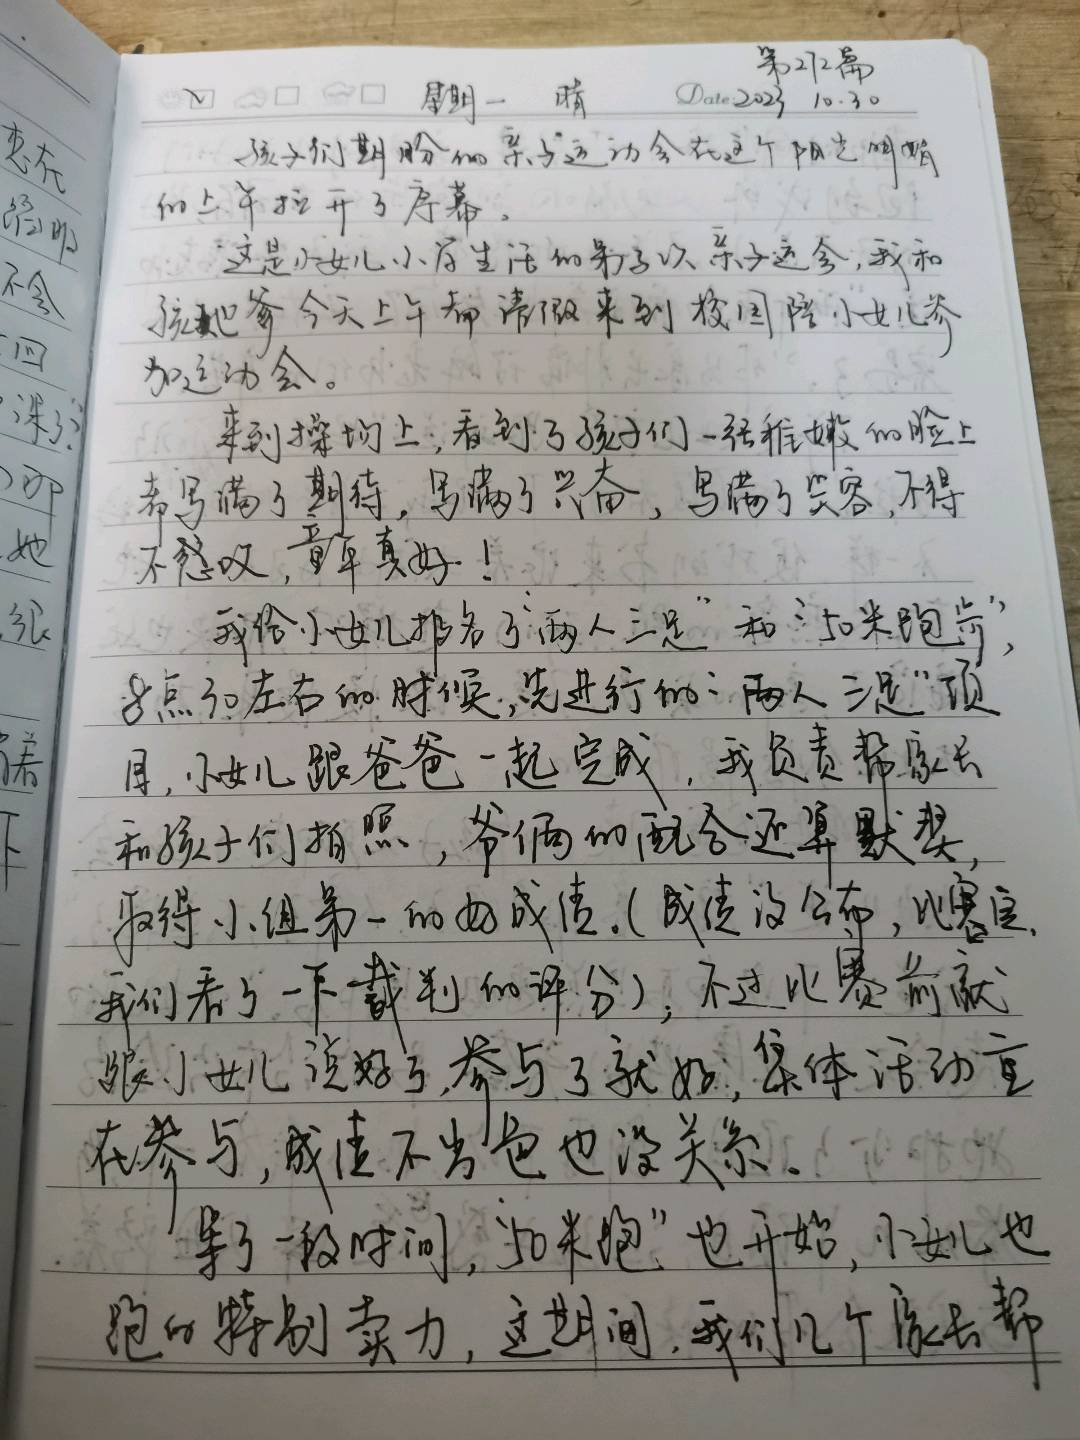 第272篇
星期一 晴 Date 2023 10.30
孩子们期盼的亲子运动会在这个阳光明媚
的上午拉开了序幕。
这是小女儿小学生活的第3次亲子运会,我和
孩她爹今天上午都请假来到校园陪小女儿参
加运动会。
来到操场上,看到了孩子们一张稚嫩的脸上
都写满了期待,写满了兴奋,写满了笑容,不得
不感叹,童年真好!
我给小女儿报名了“两人三足”和“50米跑步”,
8点30左右的时候,先进行的“两人三足”项
目,小女儿跟爸爸一起完成,我负责帮家长
和孩子们拍照,爷俩的配合还算默契,
取得小组第一的好成绩。(成绩没公布,比赛完,
我们看了一下裁判的评分),不过比赛前就
跟小女儿说好了,参与了就好,集体活动重
在参与,成绩不出色也没关系。
等了一段时间,“50米跑”也开始,小女儿也
跑的特别卖力,这期间,我们几个家长帮
恋在
不会
回
课了
她
很
着
下